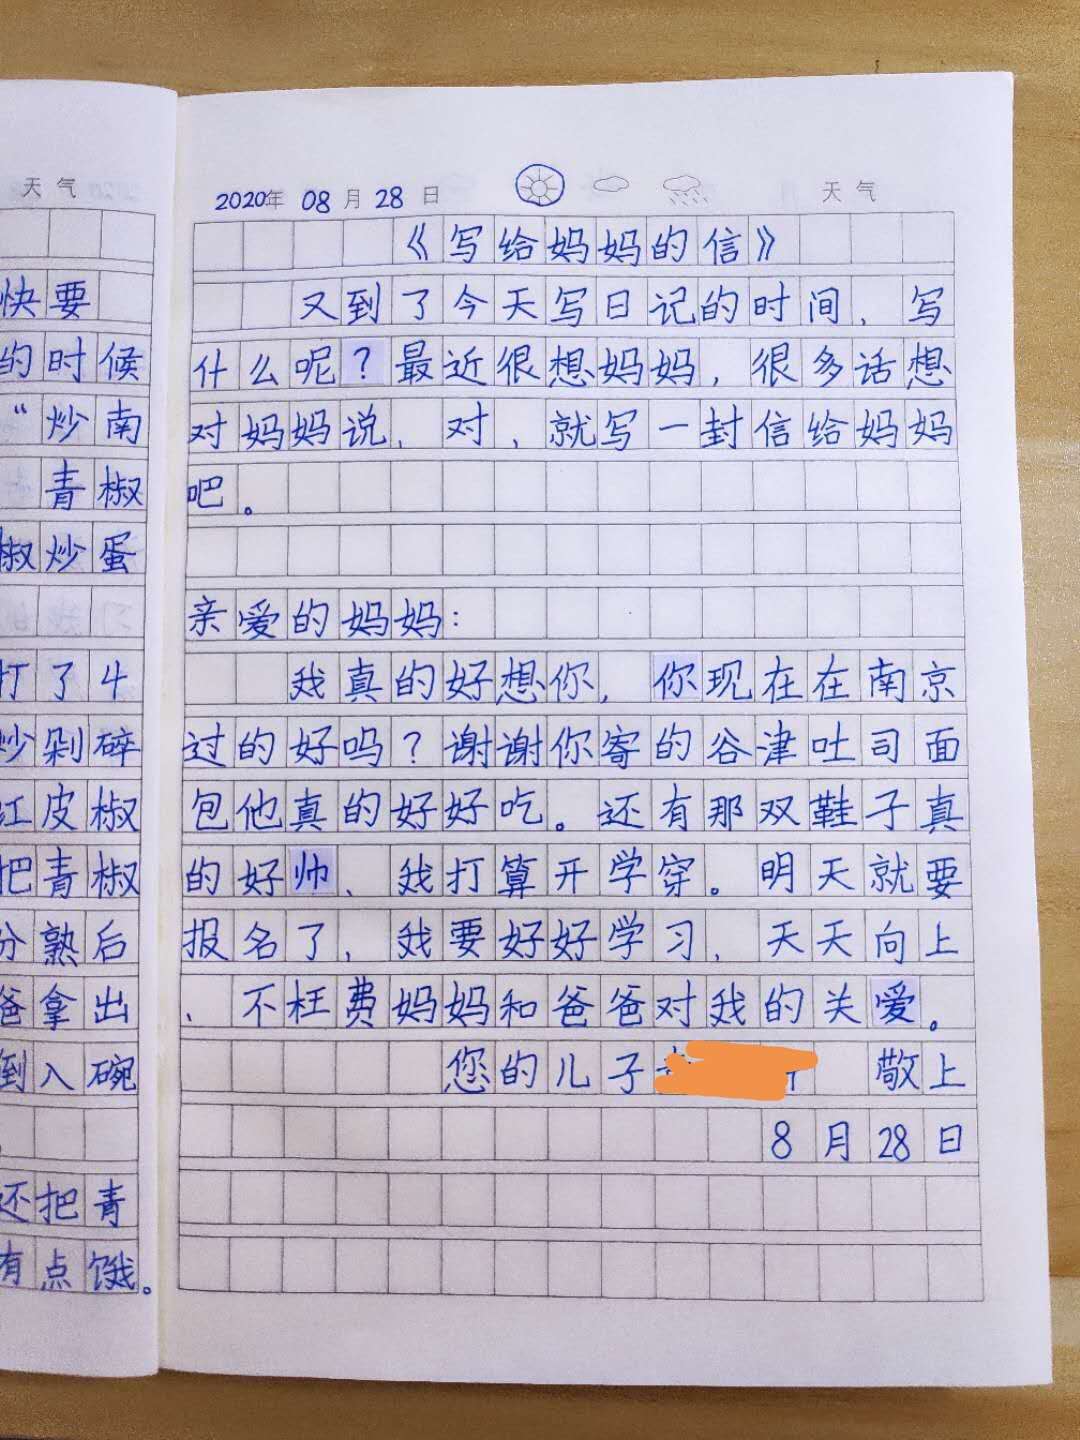 天气
快要
的时候
“炒南
青椒
椒炒蛋
打了4
炒剁碎
红皮椒
把青椒
分熟后
爸拿出
倒入碗
还把青
有点饿。
2020年 08月 28日 天气
《写给妈妈的信》
又到了今天写日记的时间，写
什么呢？最近很想妈妈，很多话想
对妈妈说，对，就写一封信给妈妈
吧。
亲爱的妈妈：
我真的好想你，你现在在南京
过的好吗？谢谢你寄的谷津吐司面
包他真的好好吃。还有那双鞋子真
的好帅、我打算开学穿。明天就要
报名了，我要好好学习，天天向上
、不枉费妈妈和爸爸对我的关爱。
您的儿子 敬上
8月28日